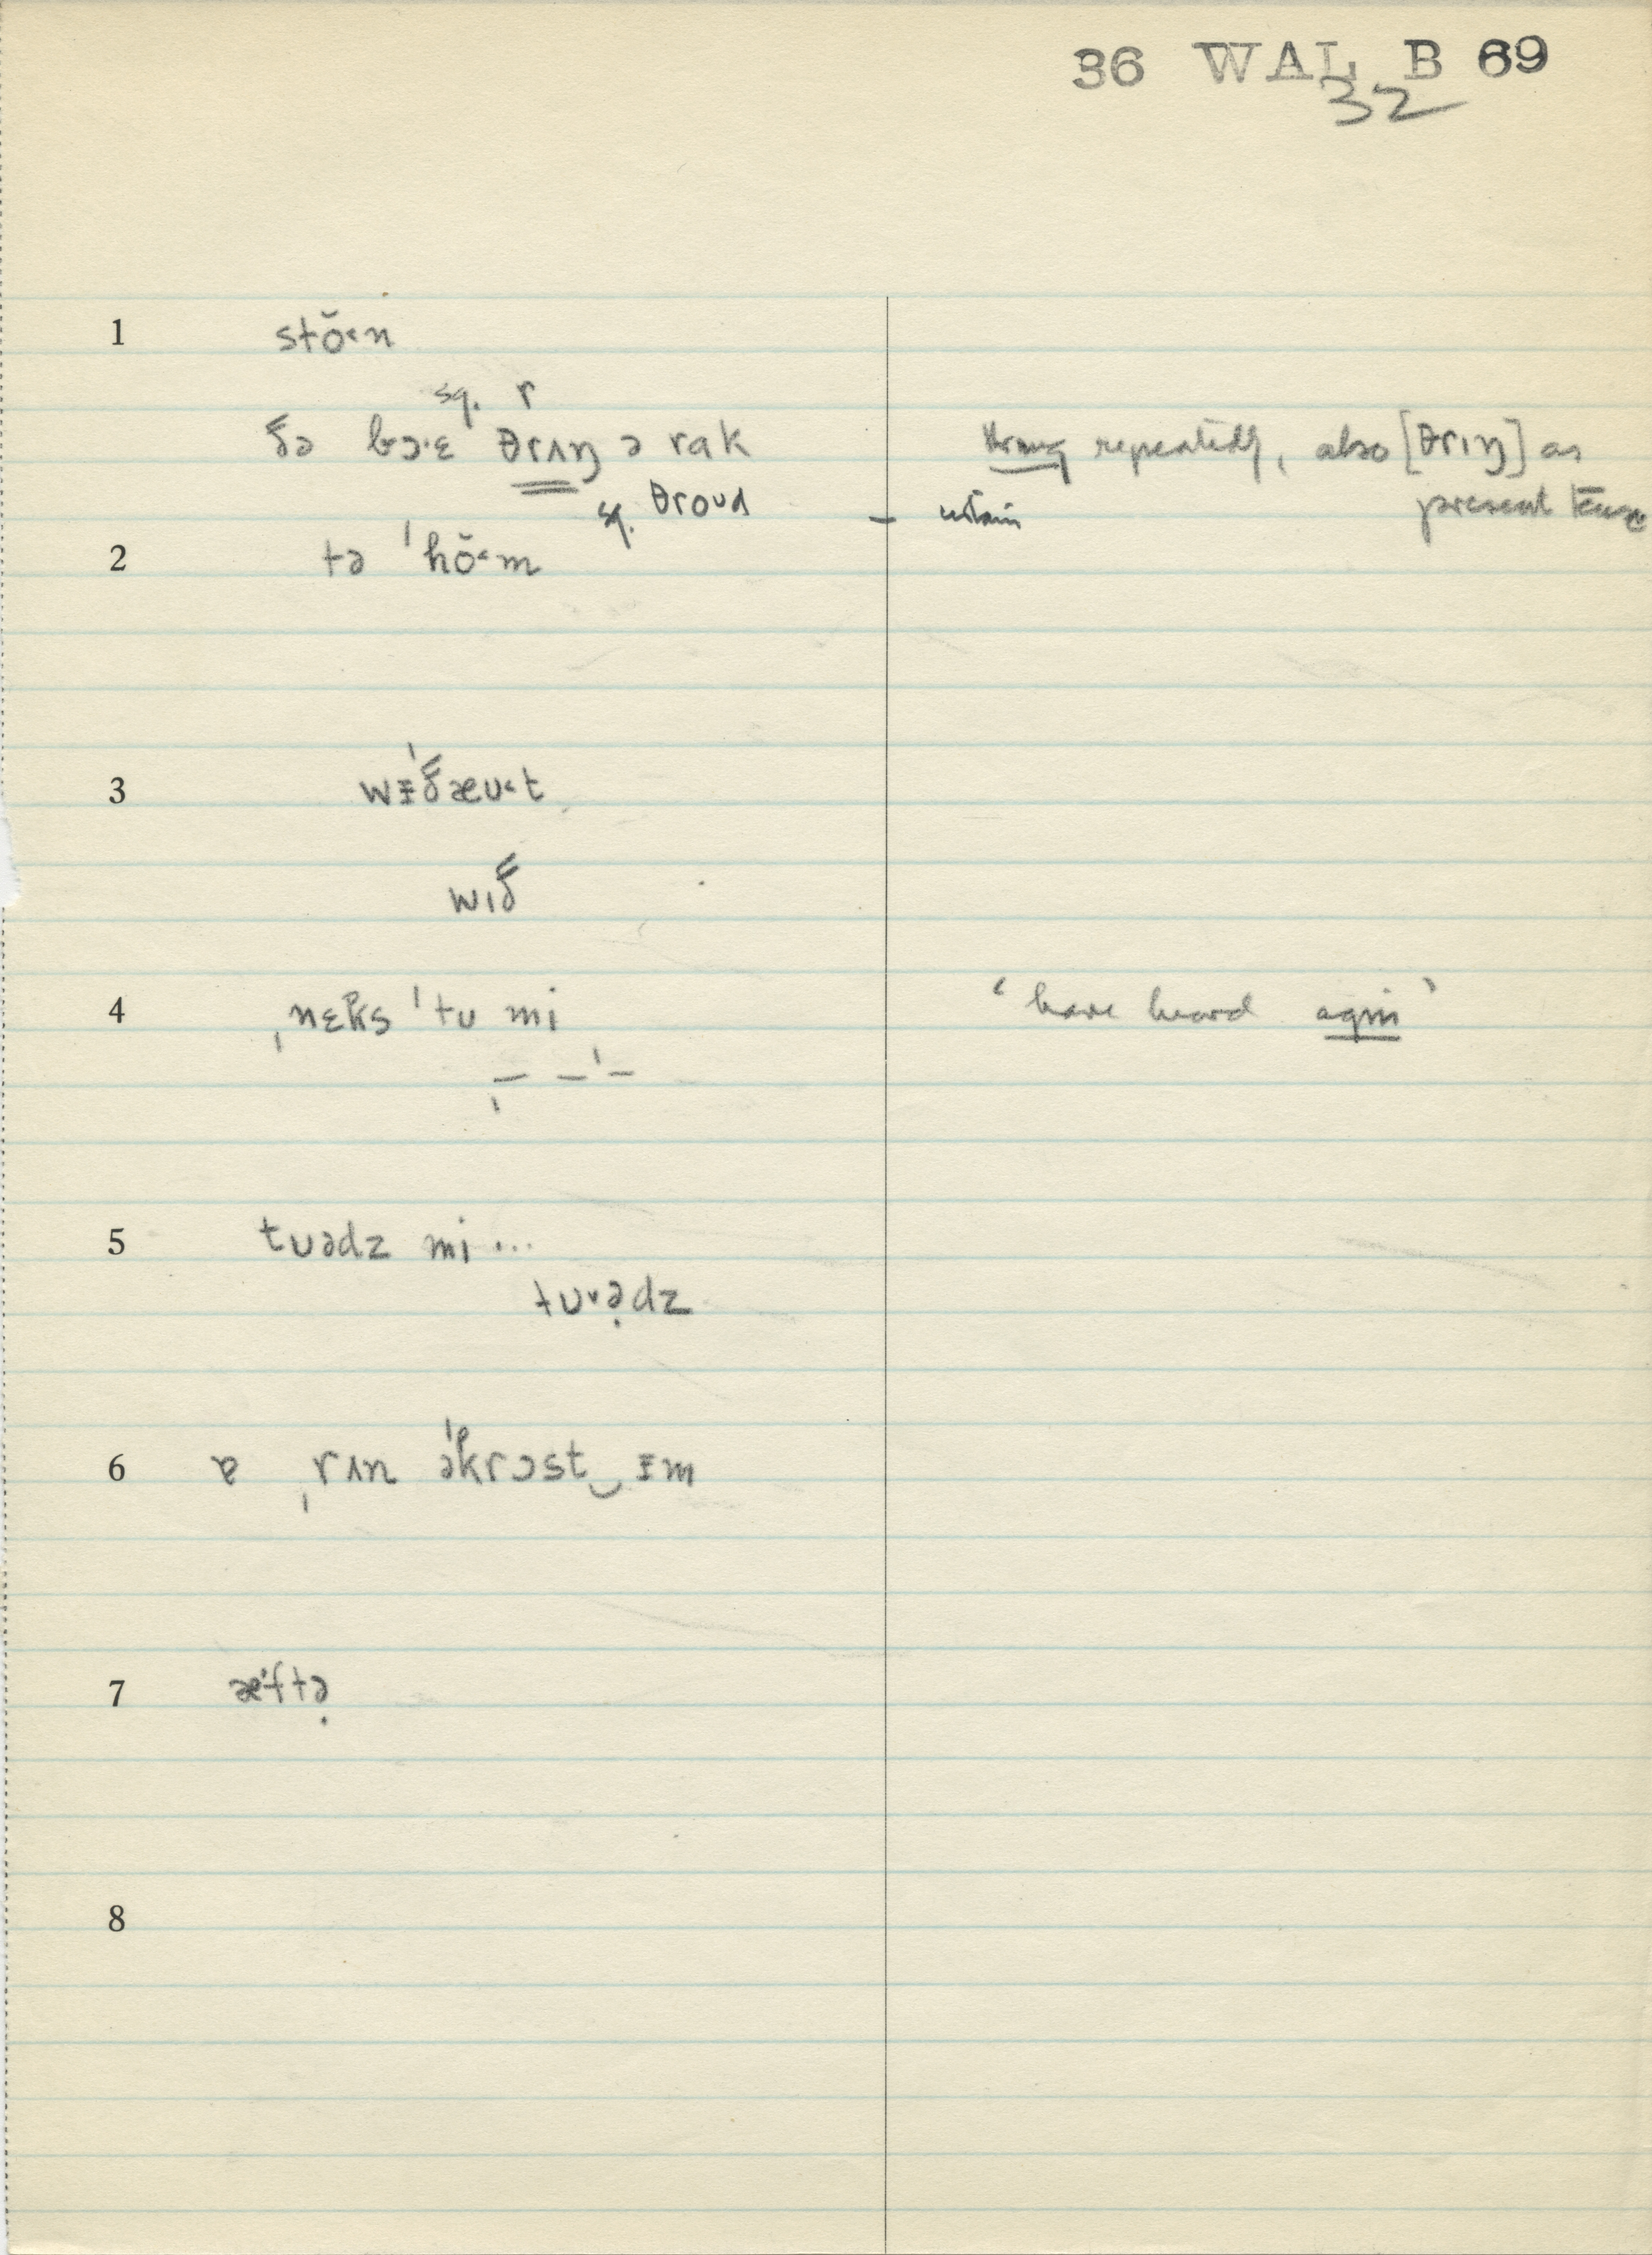 36 WAL B 69
32
1 stŏ˂n
sg. r
ðə bɔ·ɛ θrʌŋ ə rak
throng repeatedly, also [θrɪŋ] as
sg. θroud
present tense
2 tə ˈhŏ˂m
3 wᵻˈðæʊ˂t
wɪð
4 ˌnɛks ˈtu mi
'have heard agin'
ˌ– –ˈ–
5 tʊədz mi ...
tʊ˅ə̣dz
6 ɐ ˌrʌn əˈkrɔst‿ᵻm
7 æˈftə̣
8